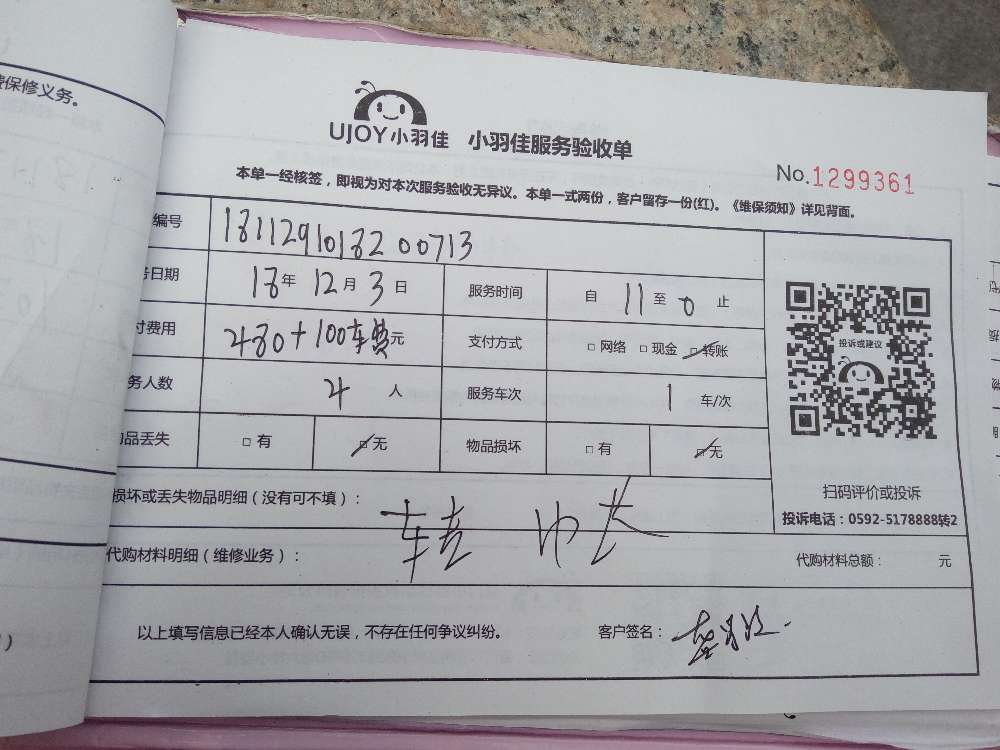 保修义务。
UJOY小羽佳 小羽佳服务验收单
No.1299361
本单一经核签，即视为对本次服务验收无异议。本单一式两份，客户留存一份(红)。《维保须知》详见背面。
编号 18112910182 00713
日期 18年 12月 3日 服务时间 自 11 至 0 止
付费用 480+100车费元 支付方式 □网络 □现金 □转账
务人数 4 人 服务车次 1 车/次
物品丢失 □有 □无 物品损坏 □有 □无
投诉或建议
扫码评价或投诉
投诉电话：0592-5178888转2
损坏或丢失物品明细（没有可不填）：
代购材料明细（维修业务）： 代购材料总额： 元
以上填写信息已经本人确认无误，不存在任何争议纠纷。 客户签名：